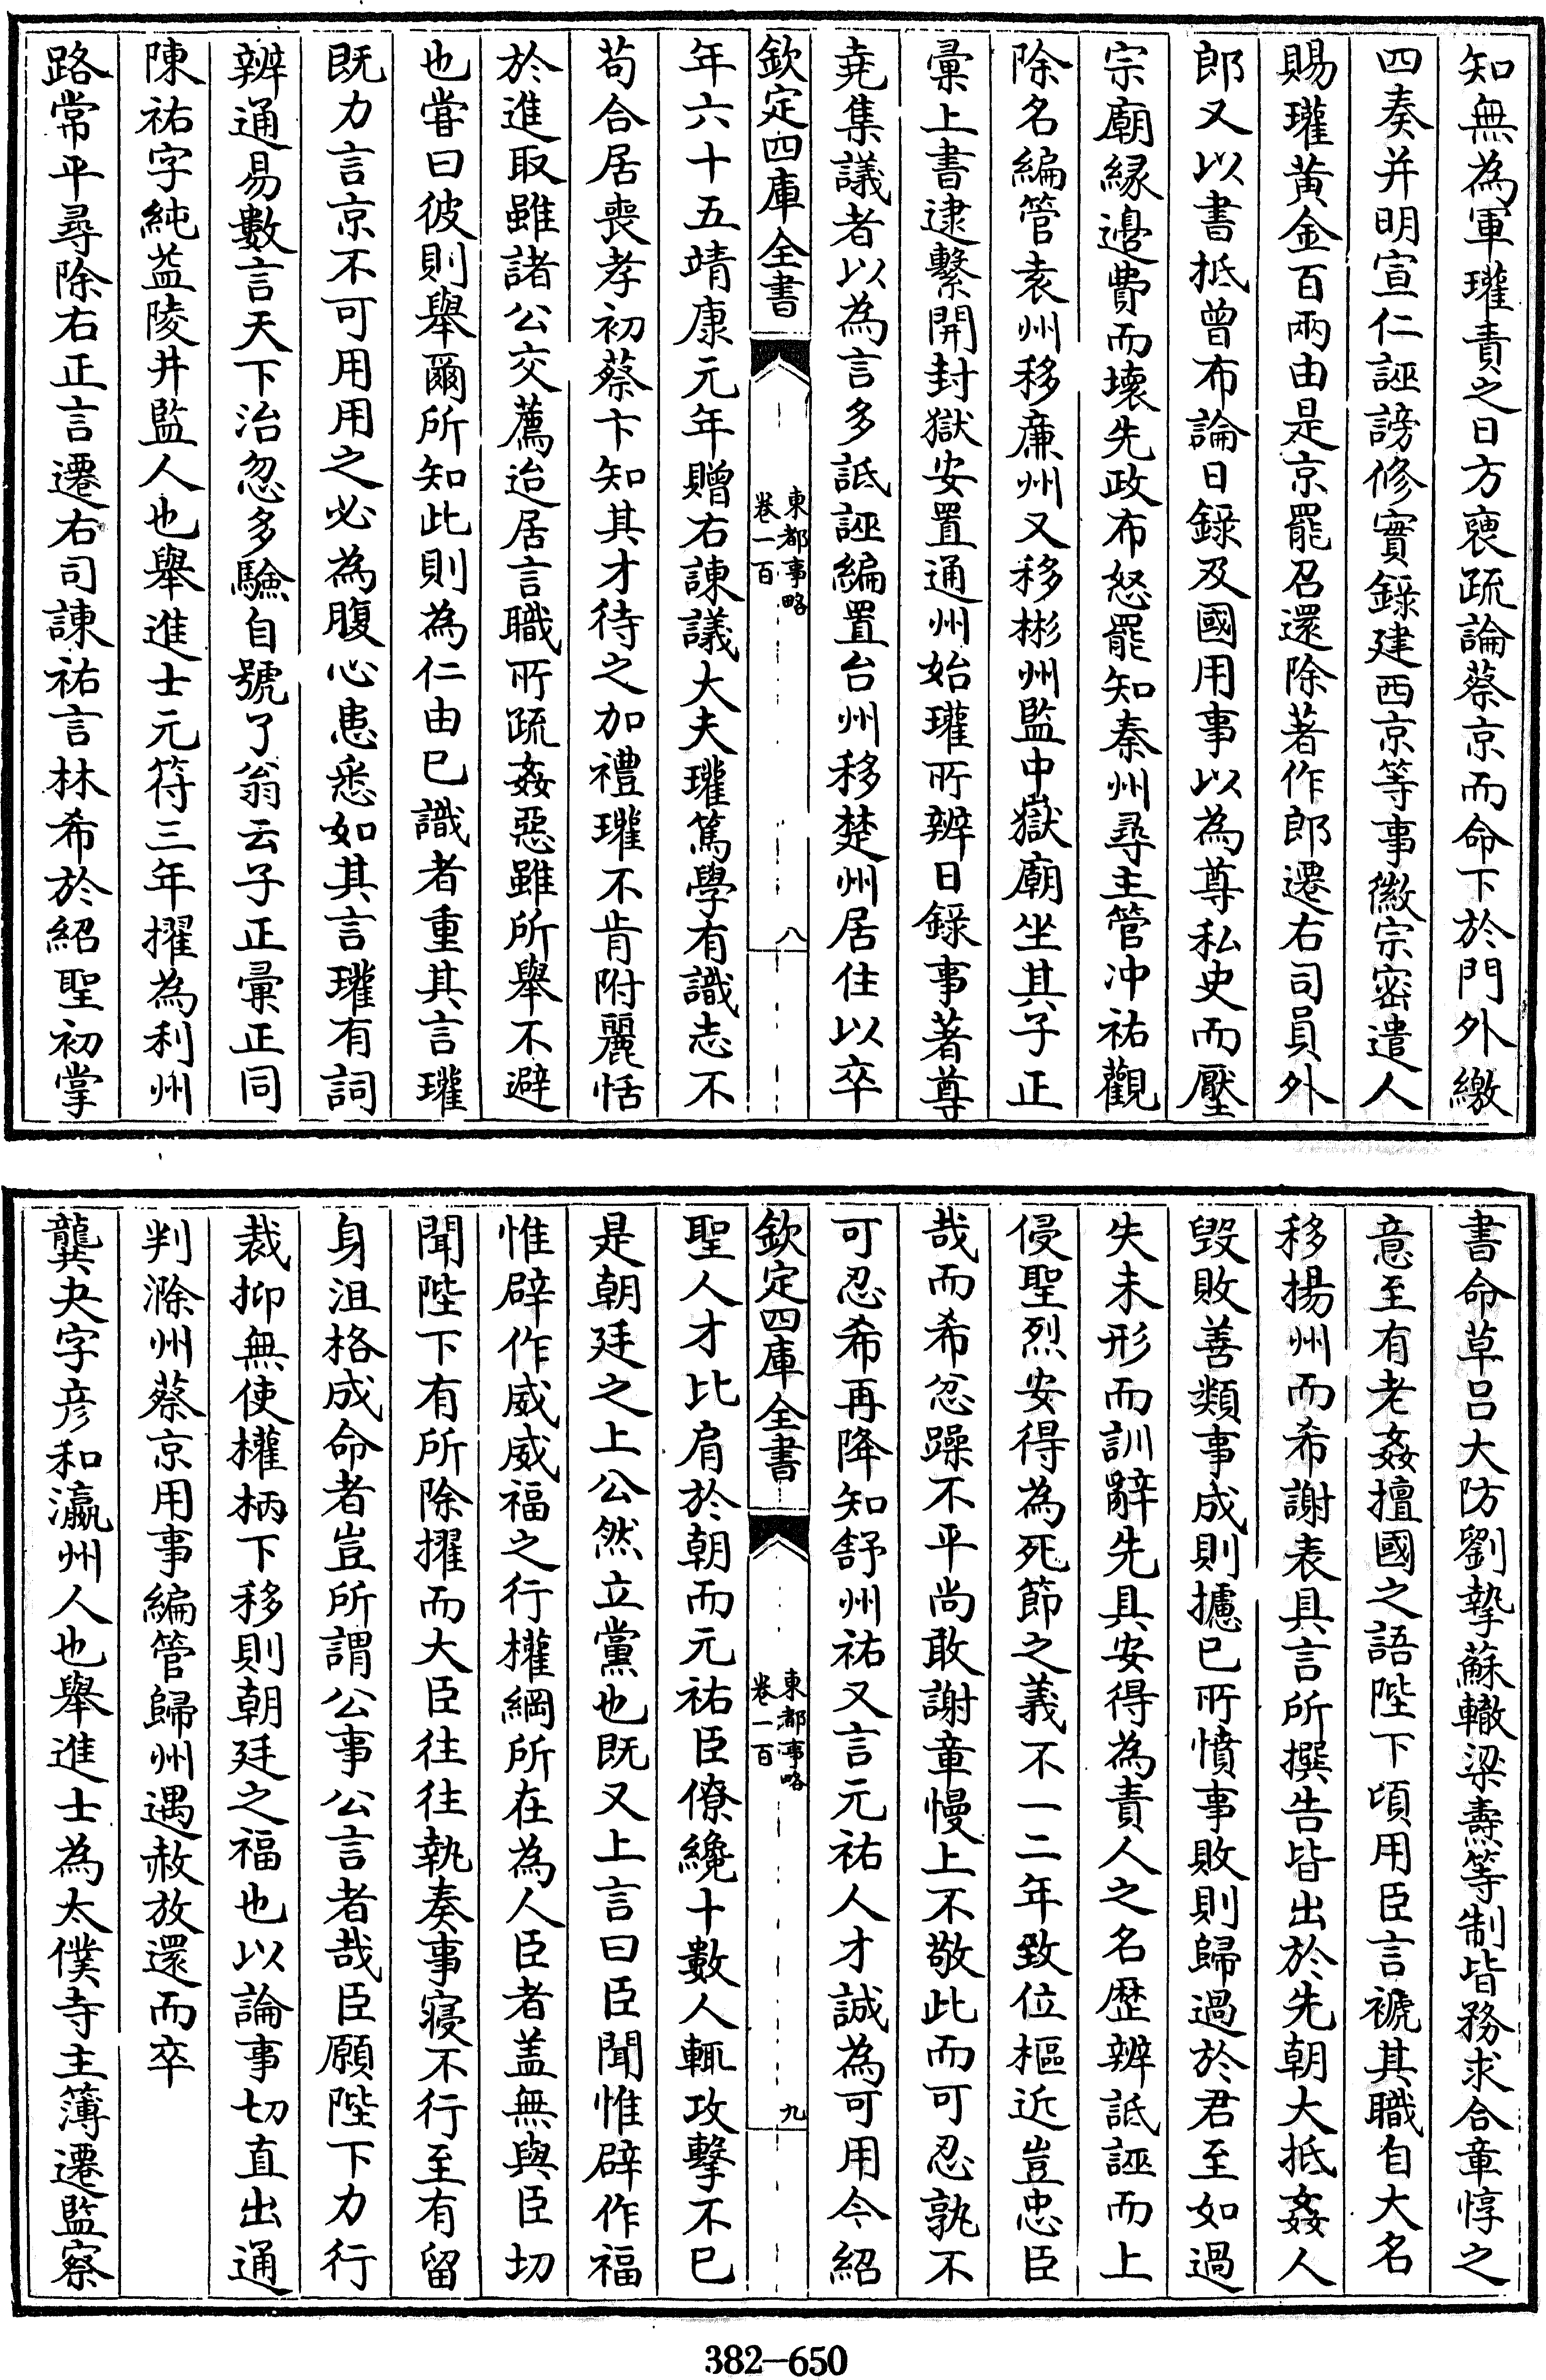 知無為軍瓘責之日方裒䟽論蔡京而命下於門外繳
四奏并明宣仁誣謗修實録建西京等事徽宗密遣人
賜瓘黄金百兩由是京罷召還除著作郎遷右司員外
郎又以書抵曾布論日録及國用事以為尊私史而壓
宗廟緣邊費而壞先政布怒罷知秦州尋主管冲祐觀
除名編管袁州移亷州又移彬州監中嶽廟坐其子正
彚上書逮繫開封獄安置通州始瓘所辨日録事著尊
堯集議者以為言多詆誣編置台州移楚州居住以卒
欽定四庫全書
東都事略
卷一百
八
年六十五靖康元年贈右諫議大夫瓘篤學有識志不
苟合居喪孝初蔡卞知其才待之加禮瓘不肯附麗恬
於進取雖諸公交薦迨居言職所䟽姦惡雖所舉不避
也甞曰彼則舉爾所知此則為仁由已識者重其言瓘
既力言京不可用用之必為腹心患悉如其言瓘有詞
辨通易數言天下治忽多驗自號了翁云子正彚正同
陳祐字純益陵井監人也舉進士元符三年擢為利州
路常平尋除右正言遷右司諫祐言林希於紹聖初掌
書命草呂大防劉摯蘇轍梁燾等制皆務求合章惇之
意至有老姦擅國之語陛下頃用臣言褫其職自大名
移揚州而希謝表具言所撰告皆出於先朝大抵姦人
毀敗善類事成則攄已所憤事敗則歸過於君至如過
失未形而訓辭先具安得為責人之名歷辨詆誣而上
侵聖烈安得為死節之義不一二年致位樞近豈忠臣
哉而希忿躁不平尚敢謝章慢上不敬此而可忍孰不
可忍希再降知舒州祐又言元祐人才誠為可用今紹
欽定四庫全書
東都事略
卷一百
九
聖人才比肩於朝而元祐臣僚纔十數人輒攻擊不已
是朝廷之上公然立黨也既又上言曰臣聞惟辟作福
惟辟作威威福之行權綱所在為人臣者盖無與臣切
聞陛下有所除擢而大臣往往執奏事寢不行至有留
身沮格成命者豈所謂公事公言者哉臣願陛下力行
裁抑無使權柄下移則朝廷之福也以論事切直出通
判滁州蔡京用事編管歸州遇赦放還而卒
龔夬字彦和瀛州人也舉進士為太僕寺主簿遷監察
382—650